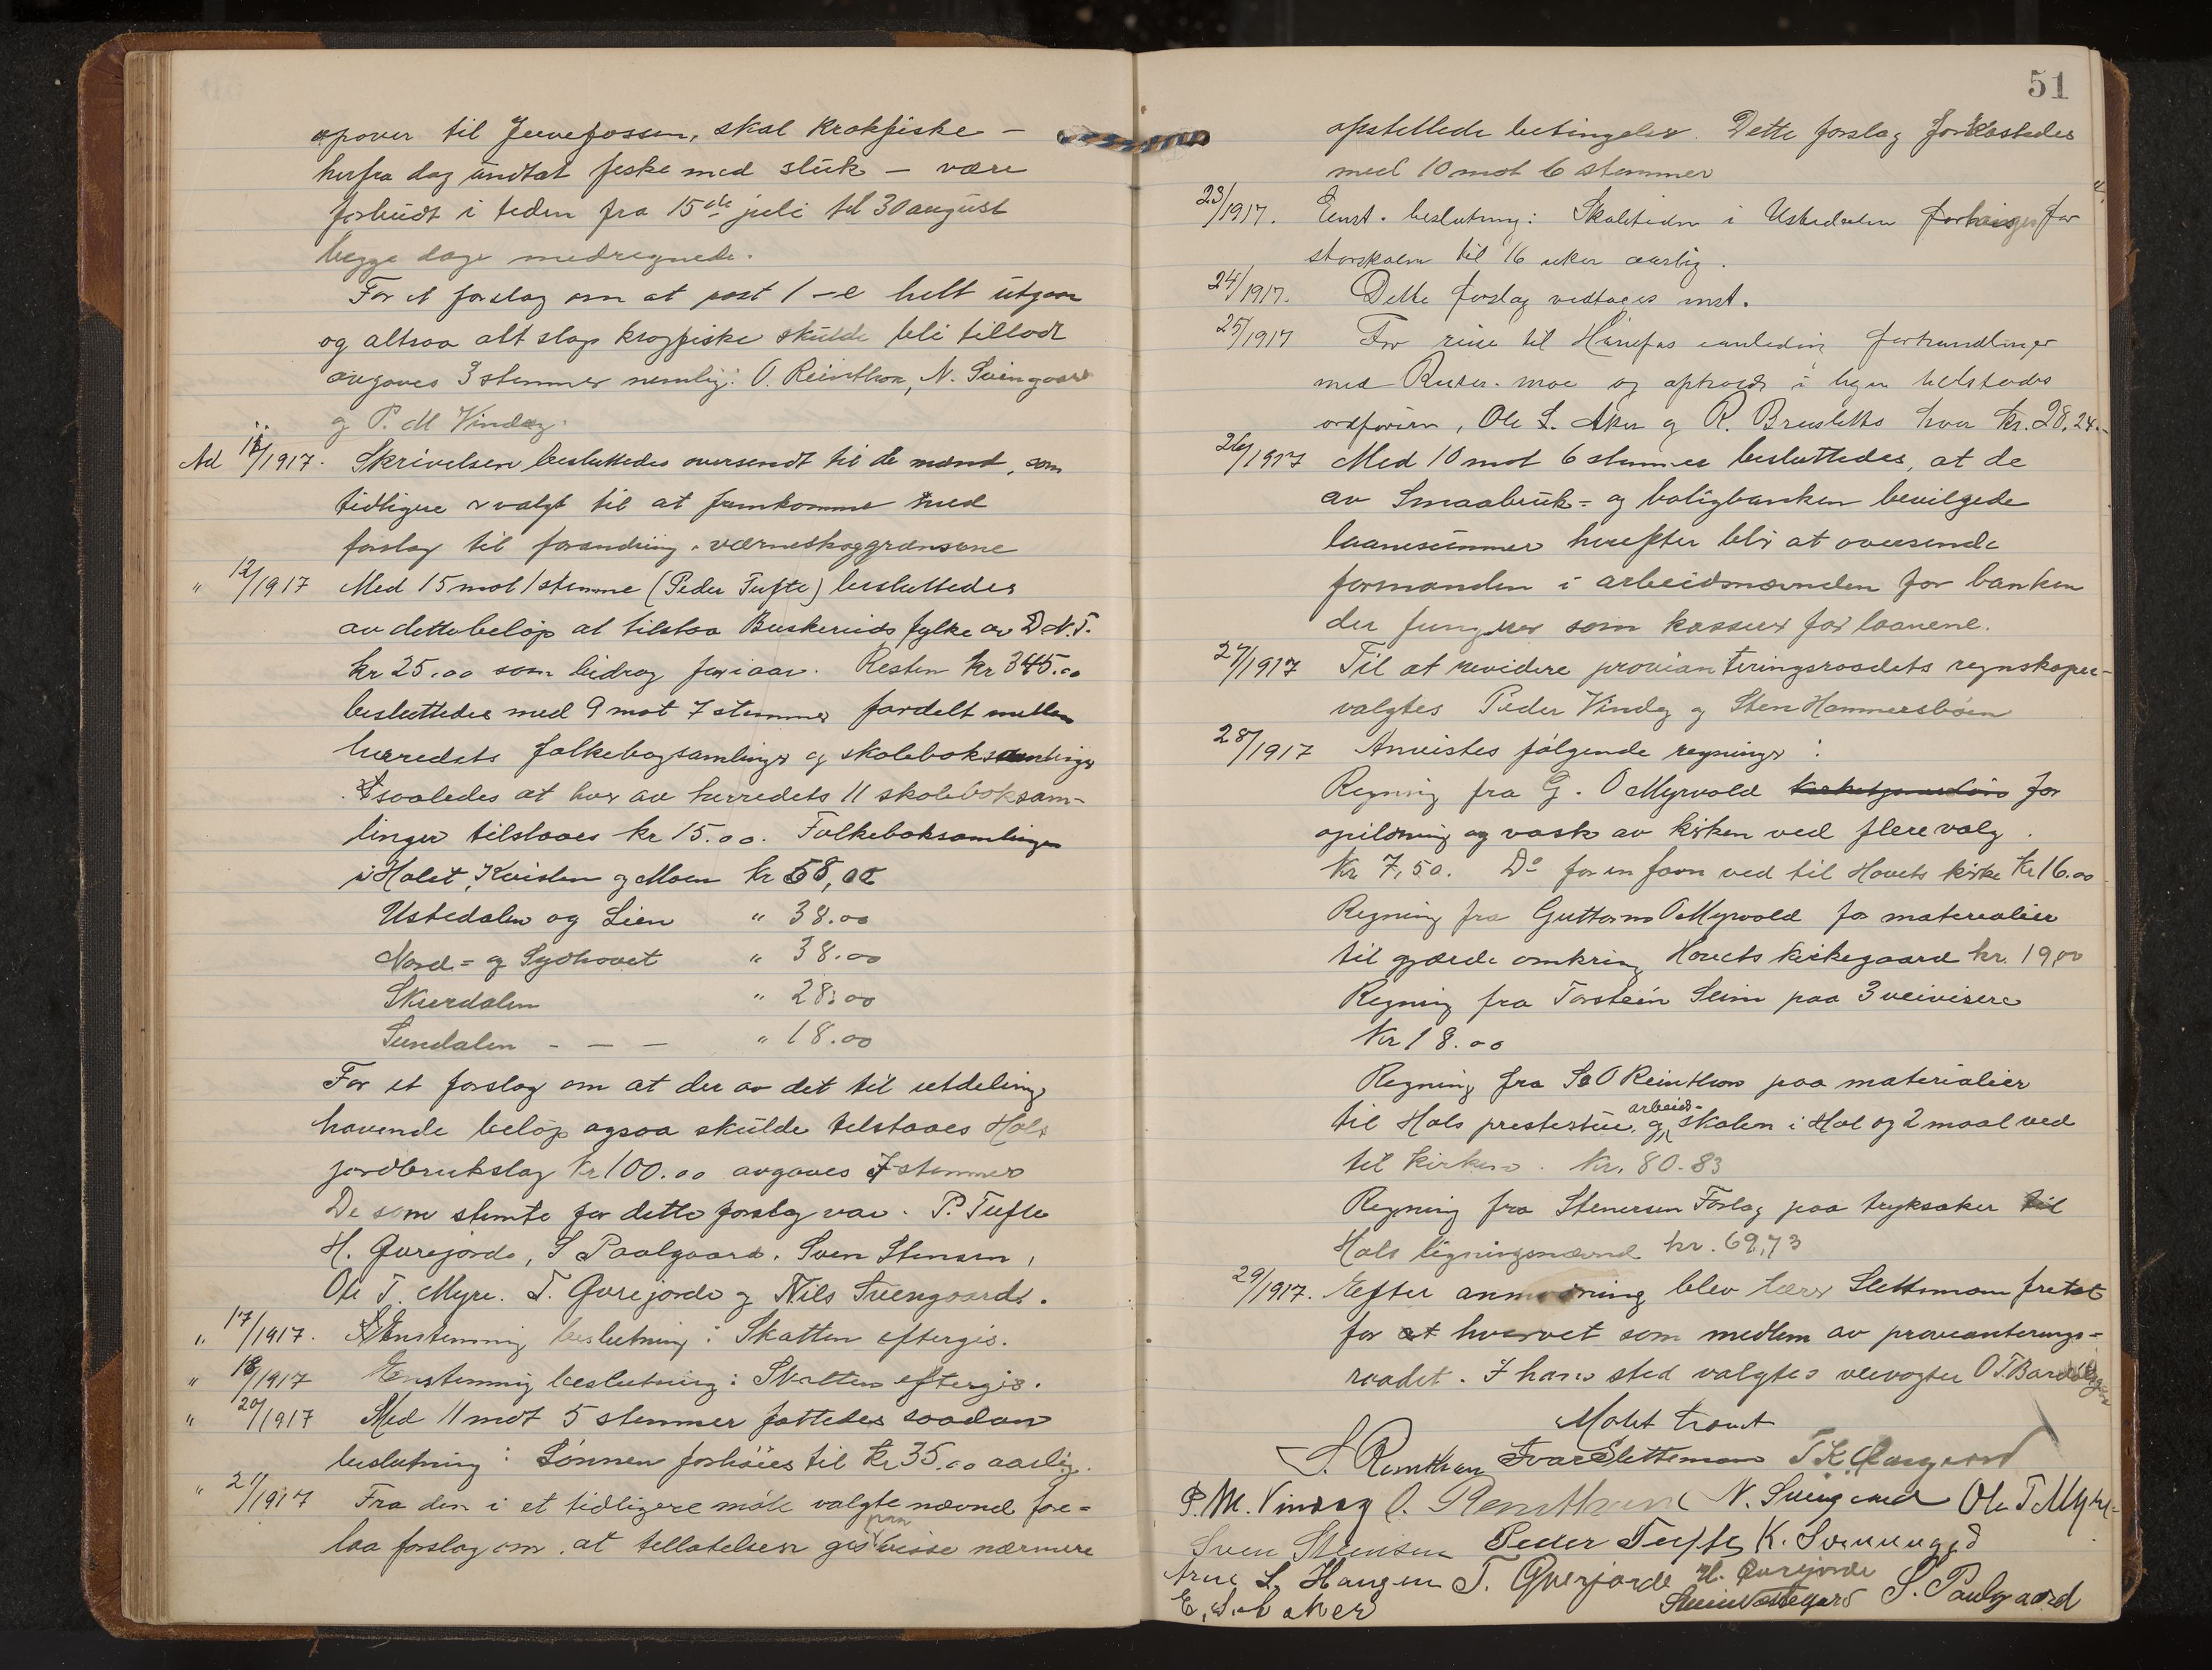 opover til Juvefossen, skal krokfiske –
herfra dog undtat fiske med sluk – være
forbudt i tiden fra 15de juli til 30 august
begge dage medregnede.
For et forslag om at post 1-e helt utgaar
og altsaa alt slags krogfiske skulde bli tillatt
avgaves 3 stemmer nemlig: O. Reinthon, N. Svengaard
og P. M Vindeg.
Ad 11/1917. Skrivelsen besluttedes oversendt til de mænd, som
tidligere er valgt til at fremkomme med
forslag til forandring i værneskoggrænsene
" 12/1917 Med 15 mot 1 stemme (Peder Tufte) besluttedes
av dette beløp at tilstaa Buskeruds fylke av D.N.T.
kr 25.00 som bidrag for iaar. Resten kr 345.00
besluttedes med 9 mot 7 stemmer fordelt mellem
herredets folkebogsamlinger og skoleboksamlinger
saaledes at hver av herredets 11 skoleboksam-
linger tilstaaes kr 15.00. Folkeboksamlingen
i Holet, Kvislen og Moen kr 58,00
Ustedalen og Lien " 38.00
Nord- og Sydhovet " 38.00
Skurdalen " 28.00
Sundalen - – – " 18.00
For et forslag om at der av det til utdeling
havende beløp ogsaa skulde tilstaaes Hols
jordbrukslag kr 100.00 avgaves 7 stemmer
De som stemte for dette forslag var. P. Tufte
H. Qvrejorde, S Paalgaard. Sven Stensen,
Ole T. Myre. T. Qvrejorde og Nils Svengaard.
" 17/1917. Enstemmig beslutning: Skatten eftergis.
" 18/1917 Enstemmig beslutning: Skatten eftergis.
" 20/1917 Med 11 mot 5 stemmer fattedes saadan
beslutning: Lønnen forhøies til kr 35.00 aarlig.
" 21/1917 Fra den i et tidligere møte valgte nævnd fore-
laa forslag om at tillatelsen gis paa visse nærmere
51
opstillede betingelser. Dette forslag forkastedes
med 10 mot 6 stemmer
23/1917. Enst. beslutning: Skoletiden i Ustedalen forhøies for
storskolen til 16 uker aarlig.
24/1917. Dette forslag vedtages enst.
25/1917 For reise til Hønefos i anledning forhandlinger
med Ruter- moe og ophold i byen tilstodes
ordføreren, Ole L. Aker og R. Brusletto hver kr. 28,24.-
26/1917 Med 10 mot 6 stemmer besluttedes, at de
av Smaabruk- og boligbanken bevilgede
laanesummer herefter blir at oversende
formanden i arbeidsnævnden for banken
der fungerer som kasserer for laanene.
27/1917 Til at revidere provianteringsraadets regnskaper
valgtes Peder Vindeg og Sten Hammersbøen
28/1917 Anvistes følgende regninger:
Regning fra G. O Myrvold for
opildning og vask av kirken ved flere valg.
Kr 7,50. Do for en favn ved til Hovets kirke kr 16.00
Regning fra Guttorm O Myrvold for materialier
til gjærde omkring Hovets kirkegaard kr. 19,00
Regning fra Torstein Seim paa 3 veivisere
Kr 18.00
Regning fra S O Reinthon paa materialier
til Hols prestestue og arbeids-skolen i Hol og 2 maal ved
til kirken. Kr. 80.83
Regning fra Stenersen Forlag paa tryksaker til
Hols ligningsnævnd kr. 69,73
29/1917. Efter anmodning blev lærer Slettemoen fritat
for hvervet som medlem av provianterings-
raadet. I hans sted valgtes veivogter O T. Bardølsgaard
Møtet hævet
S. Reinthon Ivar Slettemoen T. K.
P. M. Vindeg O. Reinthon N. Svengaard Ole T Myre
Sven Stensen Peder Tufte K. Svennungsd
Arne L. Haugen T. Qverjorde H. Qvrejorde
E. S. Aker Stein Nestegard S. Paulgaard